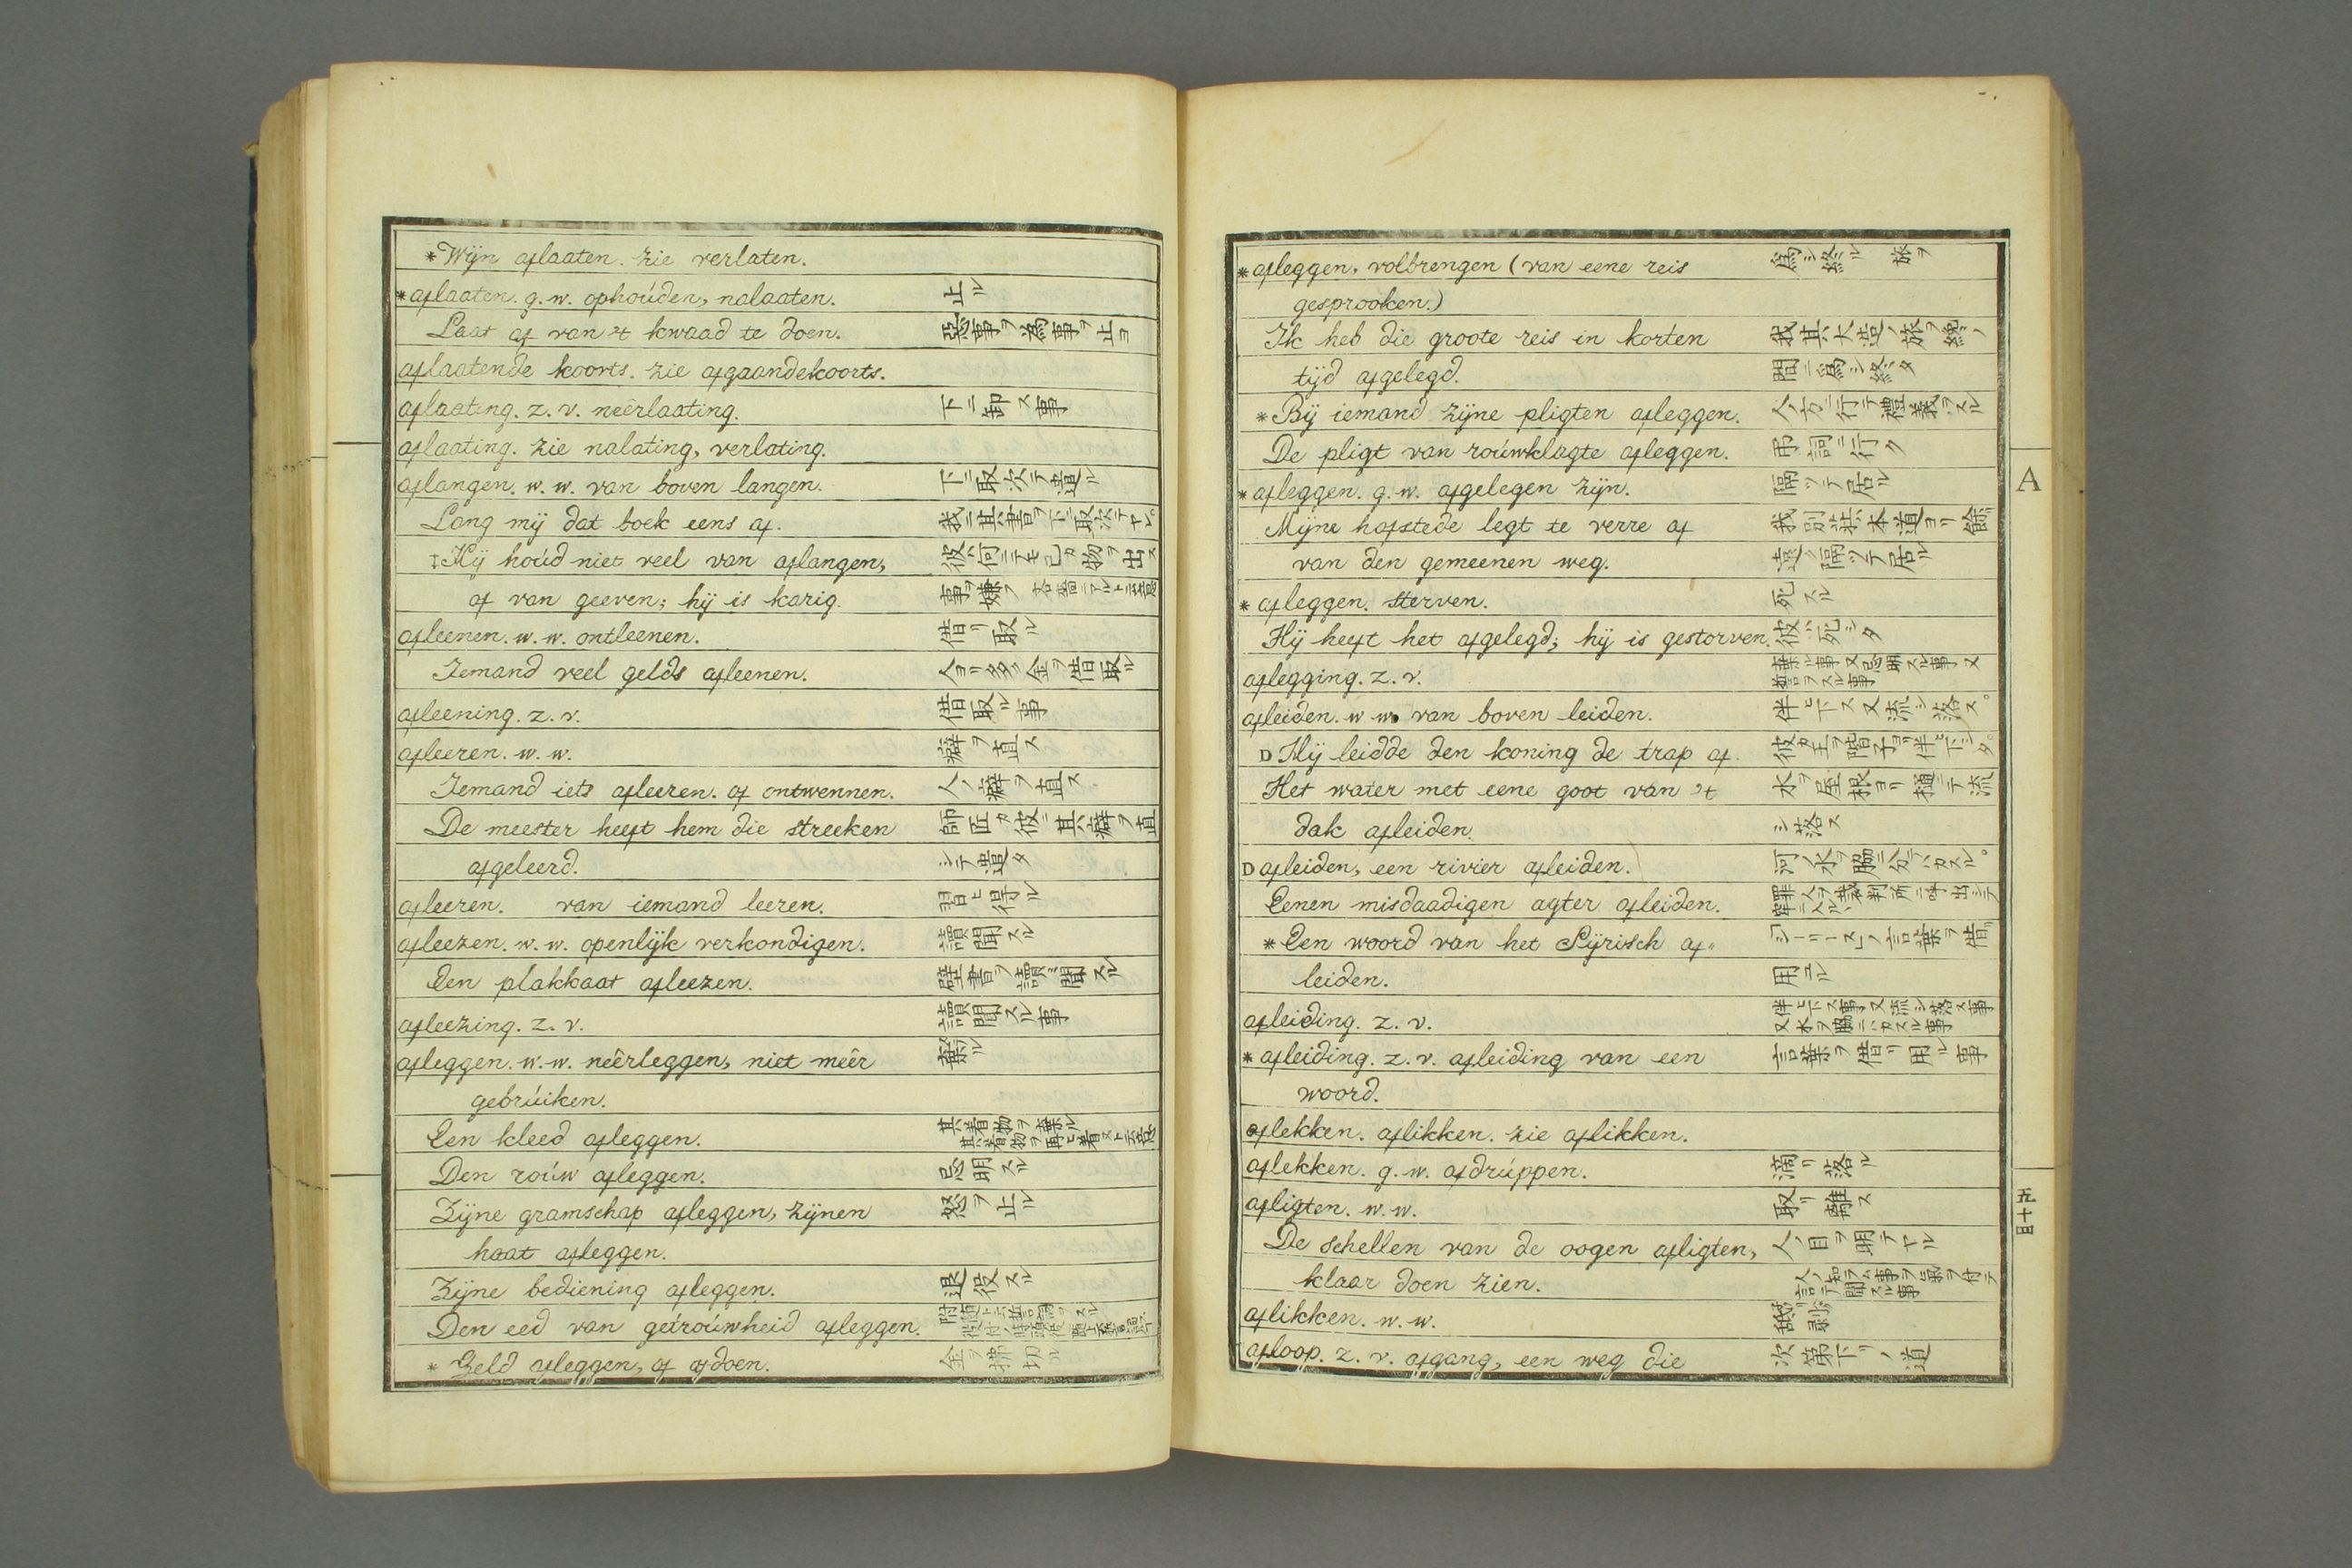 *Wijn aflaaten. zie verlaten.
*aflaaten. g. w. ophoúden, nalaaten. 止ル
Laat af van 't kwaad te doen. 惡事ヲ為事ヲ止ヨ
aflaatende koorts. zie afgaandekoorts.
aflaating. z. v. neêrlaating. 下ニ卸ス事
aflaating. zie nalating, verlating.
aflangen. w. w. van boven langen. 下ニ取次テ遣ル
Lang mij dat boek eens af. 我ニ其書ヲ下ニ取次テヤレ。
‡Hij hoúd niet veel van aflangen, 彼ハ何ニテモ己カ物ヲ出ス
af van geeven; hij is karig. 事ヲ嫌フ
afleenen. w. w. ontleenen. 借リ取ル
Iemand veel gelds afleenen. 人ヨリ多ク金ヲ借取ル
afleening. z. v. 借取ル事
afleeren. w. w. 癖ヲ直ス
Iemand iets afleeren. of ontwennen. 人ノ癖ヲ直ス
De meester heeft hem die streeken 師匠カ彼ニ其癖ヲ直
afgeleerd. シテ遣タ
afleeren. van iemand leeren. 習ヒ得ル
afleezen. w. w. openlijk verkondigen. 讀聞スル
Een plakkaat afleezen. 壁書ヲ讀聞スル
afleezing. z. v. 讀聞スル事
afleggen. w. w. neêrleggen, niet meêr 棄ル
gebrúiken.
Een kleed afleggen. 其着物ヲ棄ル 其着物ヲ再ヒ着ヌト云意
Den roúw afleggen. 忌明スル
Zijne gramschap afleggen, zijnen 怒ヲ止ル
haat afleggen.
Zijne bediening afleggen. 退役スル
Den eed van getroúwheid afleggen.
* Geld afleggen, of afdoen. 金ヲ拂切ル
*afleggen, volbrengen (van eene reis 為シ終ル 旅ヲ
gesprooken.)
Ik heb die groote reis in korten 我其大造ノ旅ヲ纔ノ
tijd afgelegd. 間ニ為シ終タ
*Bij iemand zijne pligten afleggen. 人ノ方ニ行テ禮義ヲスル
De pligt van roúwklagte afleggen. 吊詞ニ行ク
*afleggen. g. w. afgelegen zijn. 隔ツテ居ル
Mijne hofstede legt te verre af 我別莊ハ本道ヨリ餘リ
van den gemeenen weg. 遠ク隔ツテ居ル
* afleggen. sterven. 死スル
Hij heeft het afgelegd; hij is gestorven. 彼ハ死シタ
aflegging. z. v. 棄ル事又忌明スル事又誓言ヲスル事
afleiden. w w. van boven leiden. 伴ヒ下ス又流シ落ス。
D Hij leidde den koning de trap af. 彼カ王ヲ階子ヨリ伴ヒ下シタ。
Het water met eene goot van 't 水ヲ屋根ヨリ樋ニテ流
dak afleiden. シ落ス
D afleiden, een rivier afleiden. 河ノ水ヲ脇ニ分テハカスル。
Eenen misdaadigen agter afleiden. 罪人ヲ裁判所ニ呼出シテ
*Een woord van het Sijrisch af= 言葉ヲ借リ
leiden. 用ユル
afleiding. z. v. 伴ヒ下ス事又流シ落ス事又水ヲ脇ニハカスル事
* afleiding. z. v. afleiding van een 言葉ヲ借リ用ル事
woord.
aflekken. aflikken. zie aflikken.
aflekken. g. w. afdrúppen. 滴リ落ル
afligten. w. w. 取リ離ス
De schellen van de oogen afligten, 人ノ目ヲ明テヤル
klaar doen zien. 人ノ知ラヌ事ヲ氣ヲ付テ言テ聞スル事
aflikken. w. w.
afloop. z. v. afgang, een weg die 次第下リノ道
A